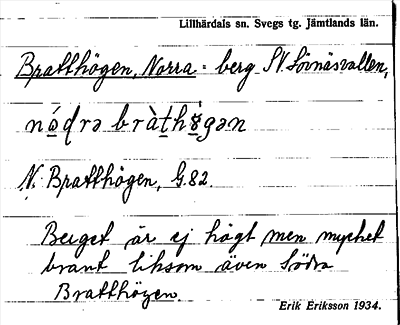 Lillhärdals sn. Svegs tg. Jämtlands län.
Bratthögen, Norra - berg SV. Lövnäsvallen,
nó̱d̨rə bràt̲h ö̀gən
N. Bratthögen, G.82.
Berget är ej högt men mycket
brant liksom även Södra
Bratthögen.
Erik Eriksson 1934.